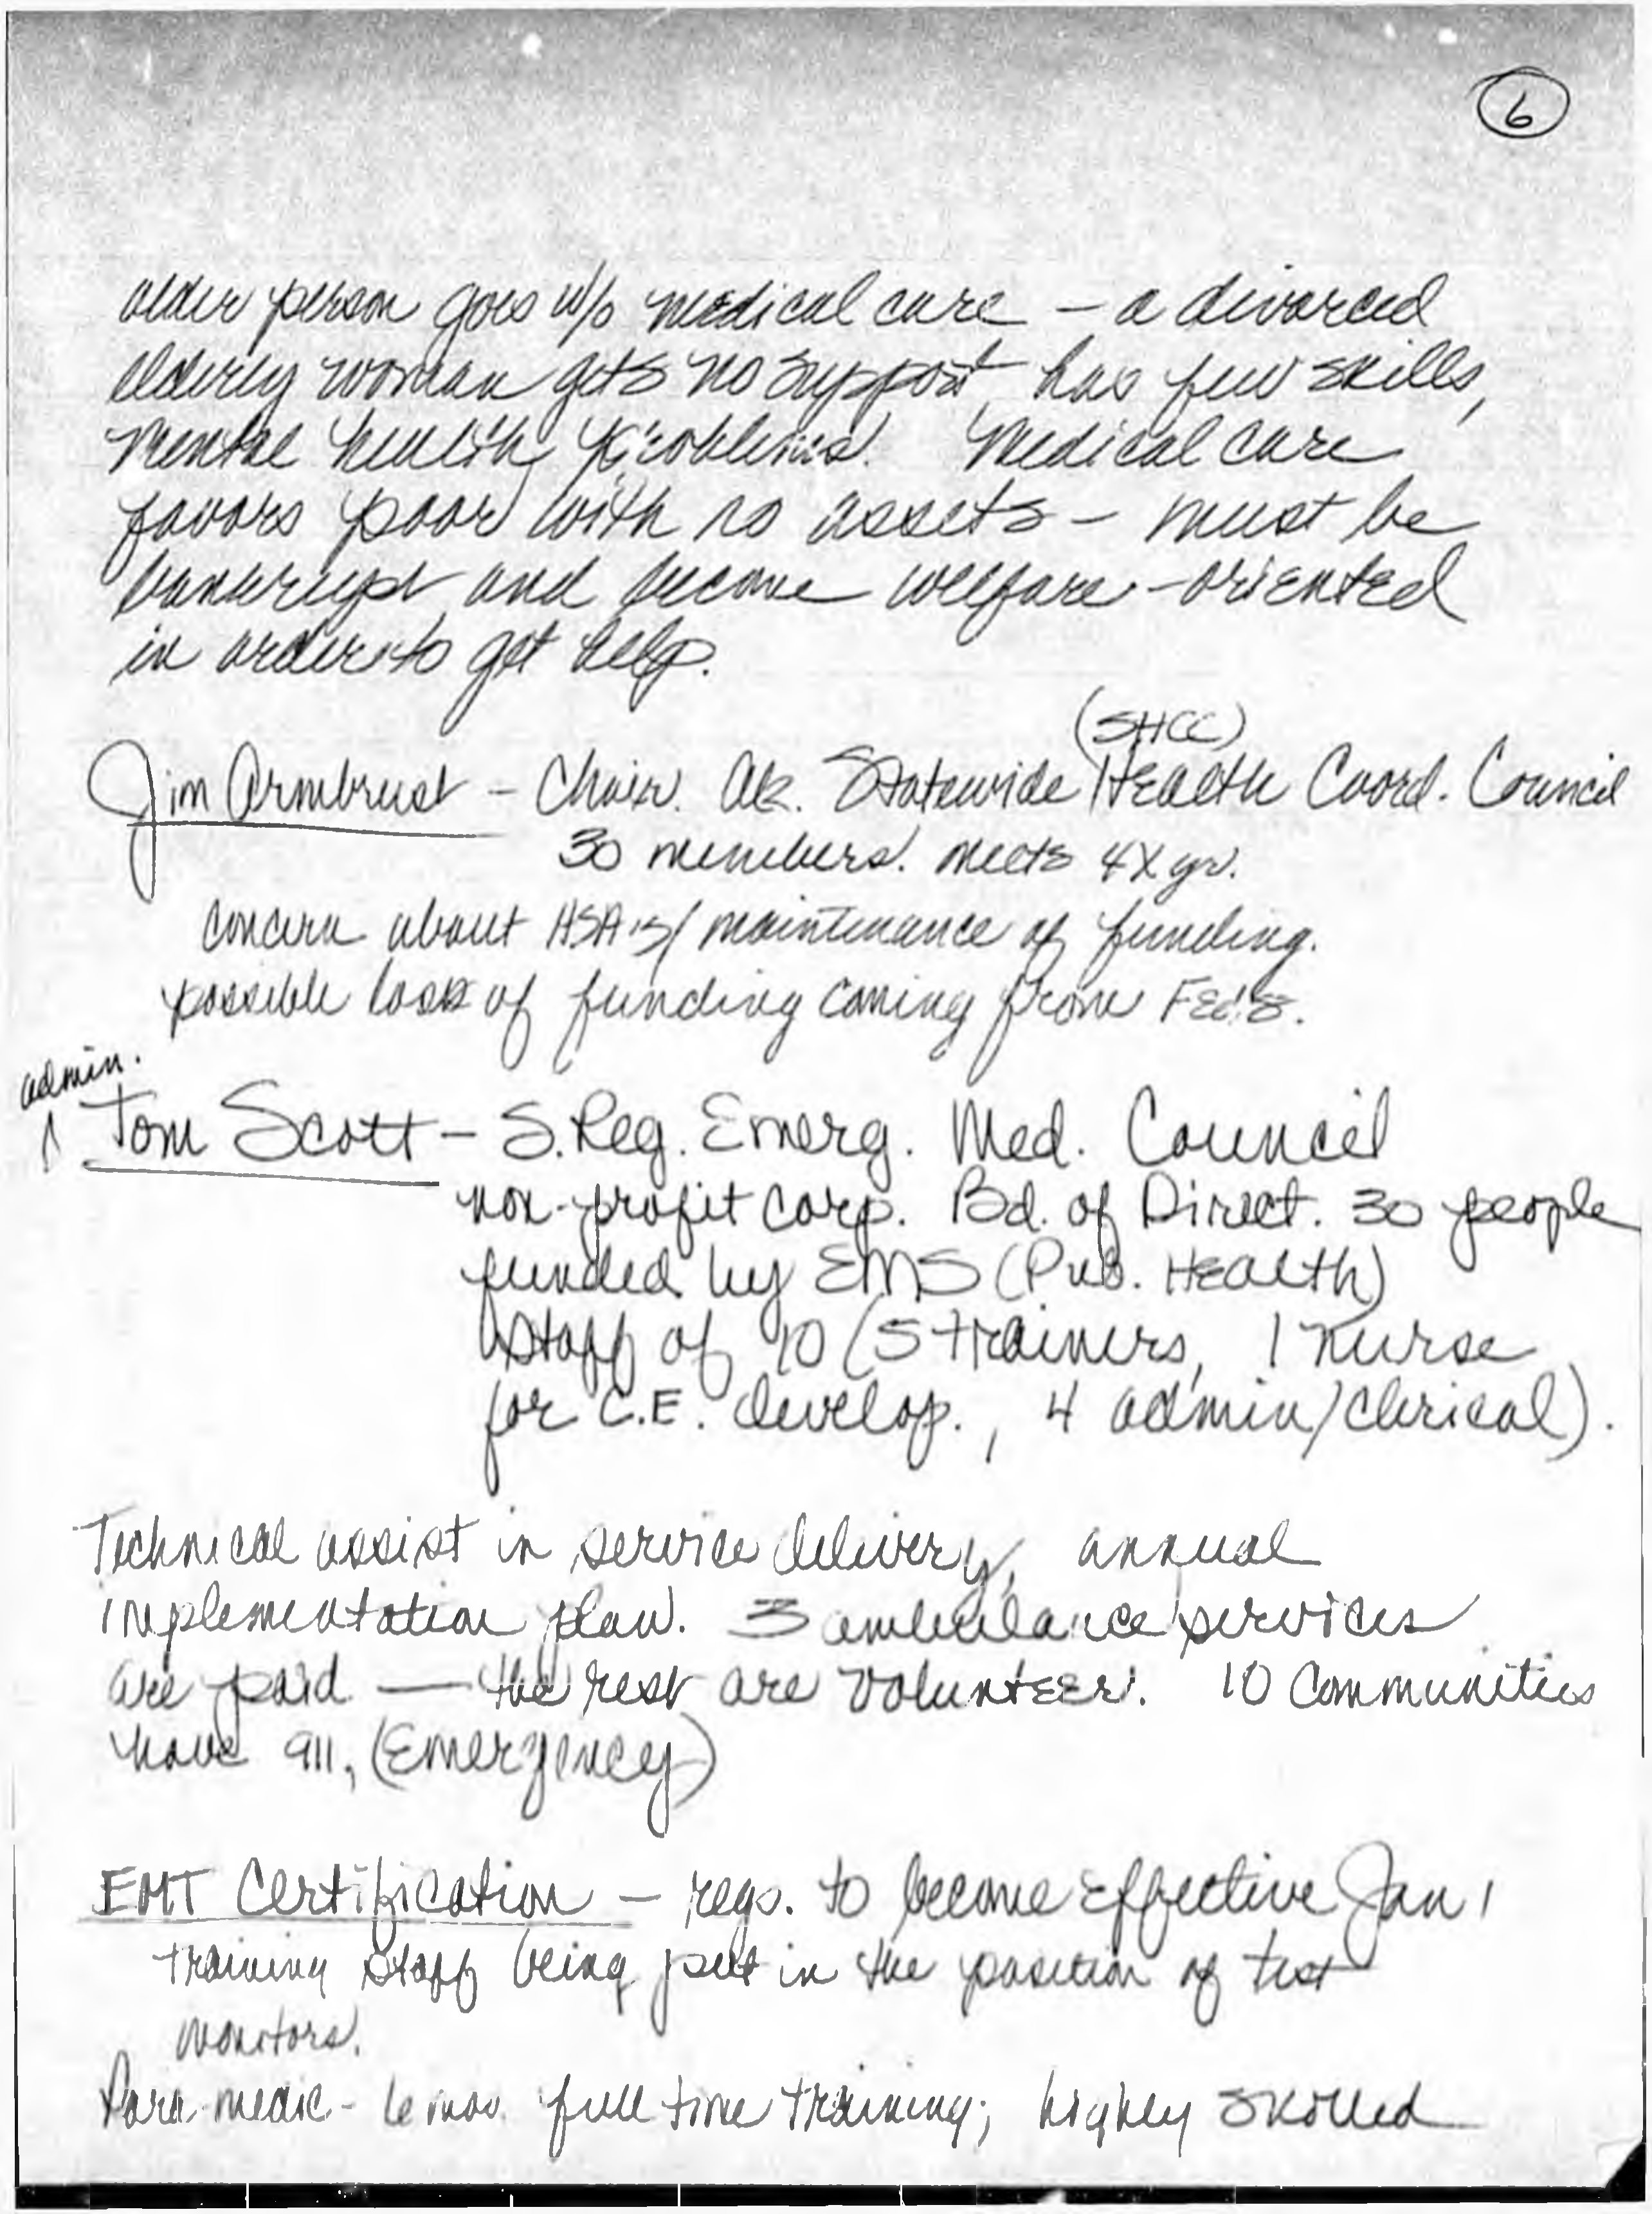 6
older person goes w/o medical care – a divorced
elderly woman gets no support, has few skills,
mental health problems. Medical care
favors poor with no assets – must be
bankrupt and become welfare-oriented
in order to get help.
(SHCC)
Jim Armbrust – Chair. Ak. Statewide Health Coord. Council
30 members. meets 4X yr.
concern about HSA's / maintenance of funding.
possible loss of funding coming from Feds.
admin.
Tom Scott – S. Reg. Emerg. Med. Council
non-profit corp. Bd. of Direct. 30 people
funded by EMS (Pub. Health)
staff of 10 (5 trainers, 1 nurse
for C.E. develop., 4 admin/clerical).
Technical assist in service delivery, annual
implementation plan. 3 ambulance services
are paid — the rest are volunteer. 10 communities
have 911, (Emergency)
EMT Certification – regs. to become effective Jan 1
training staff being put in the position of test
monitors.
Para-medic - 6 mos. full time training; highly skilled